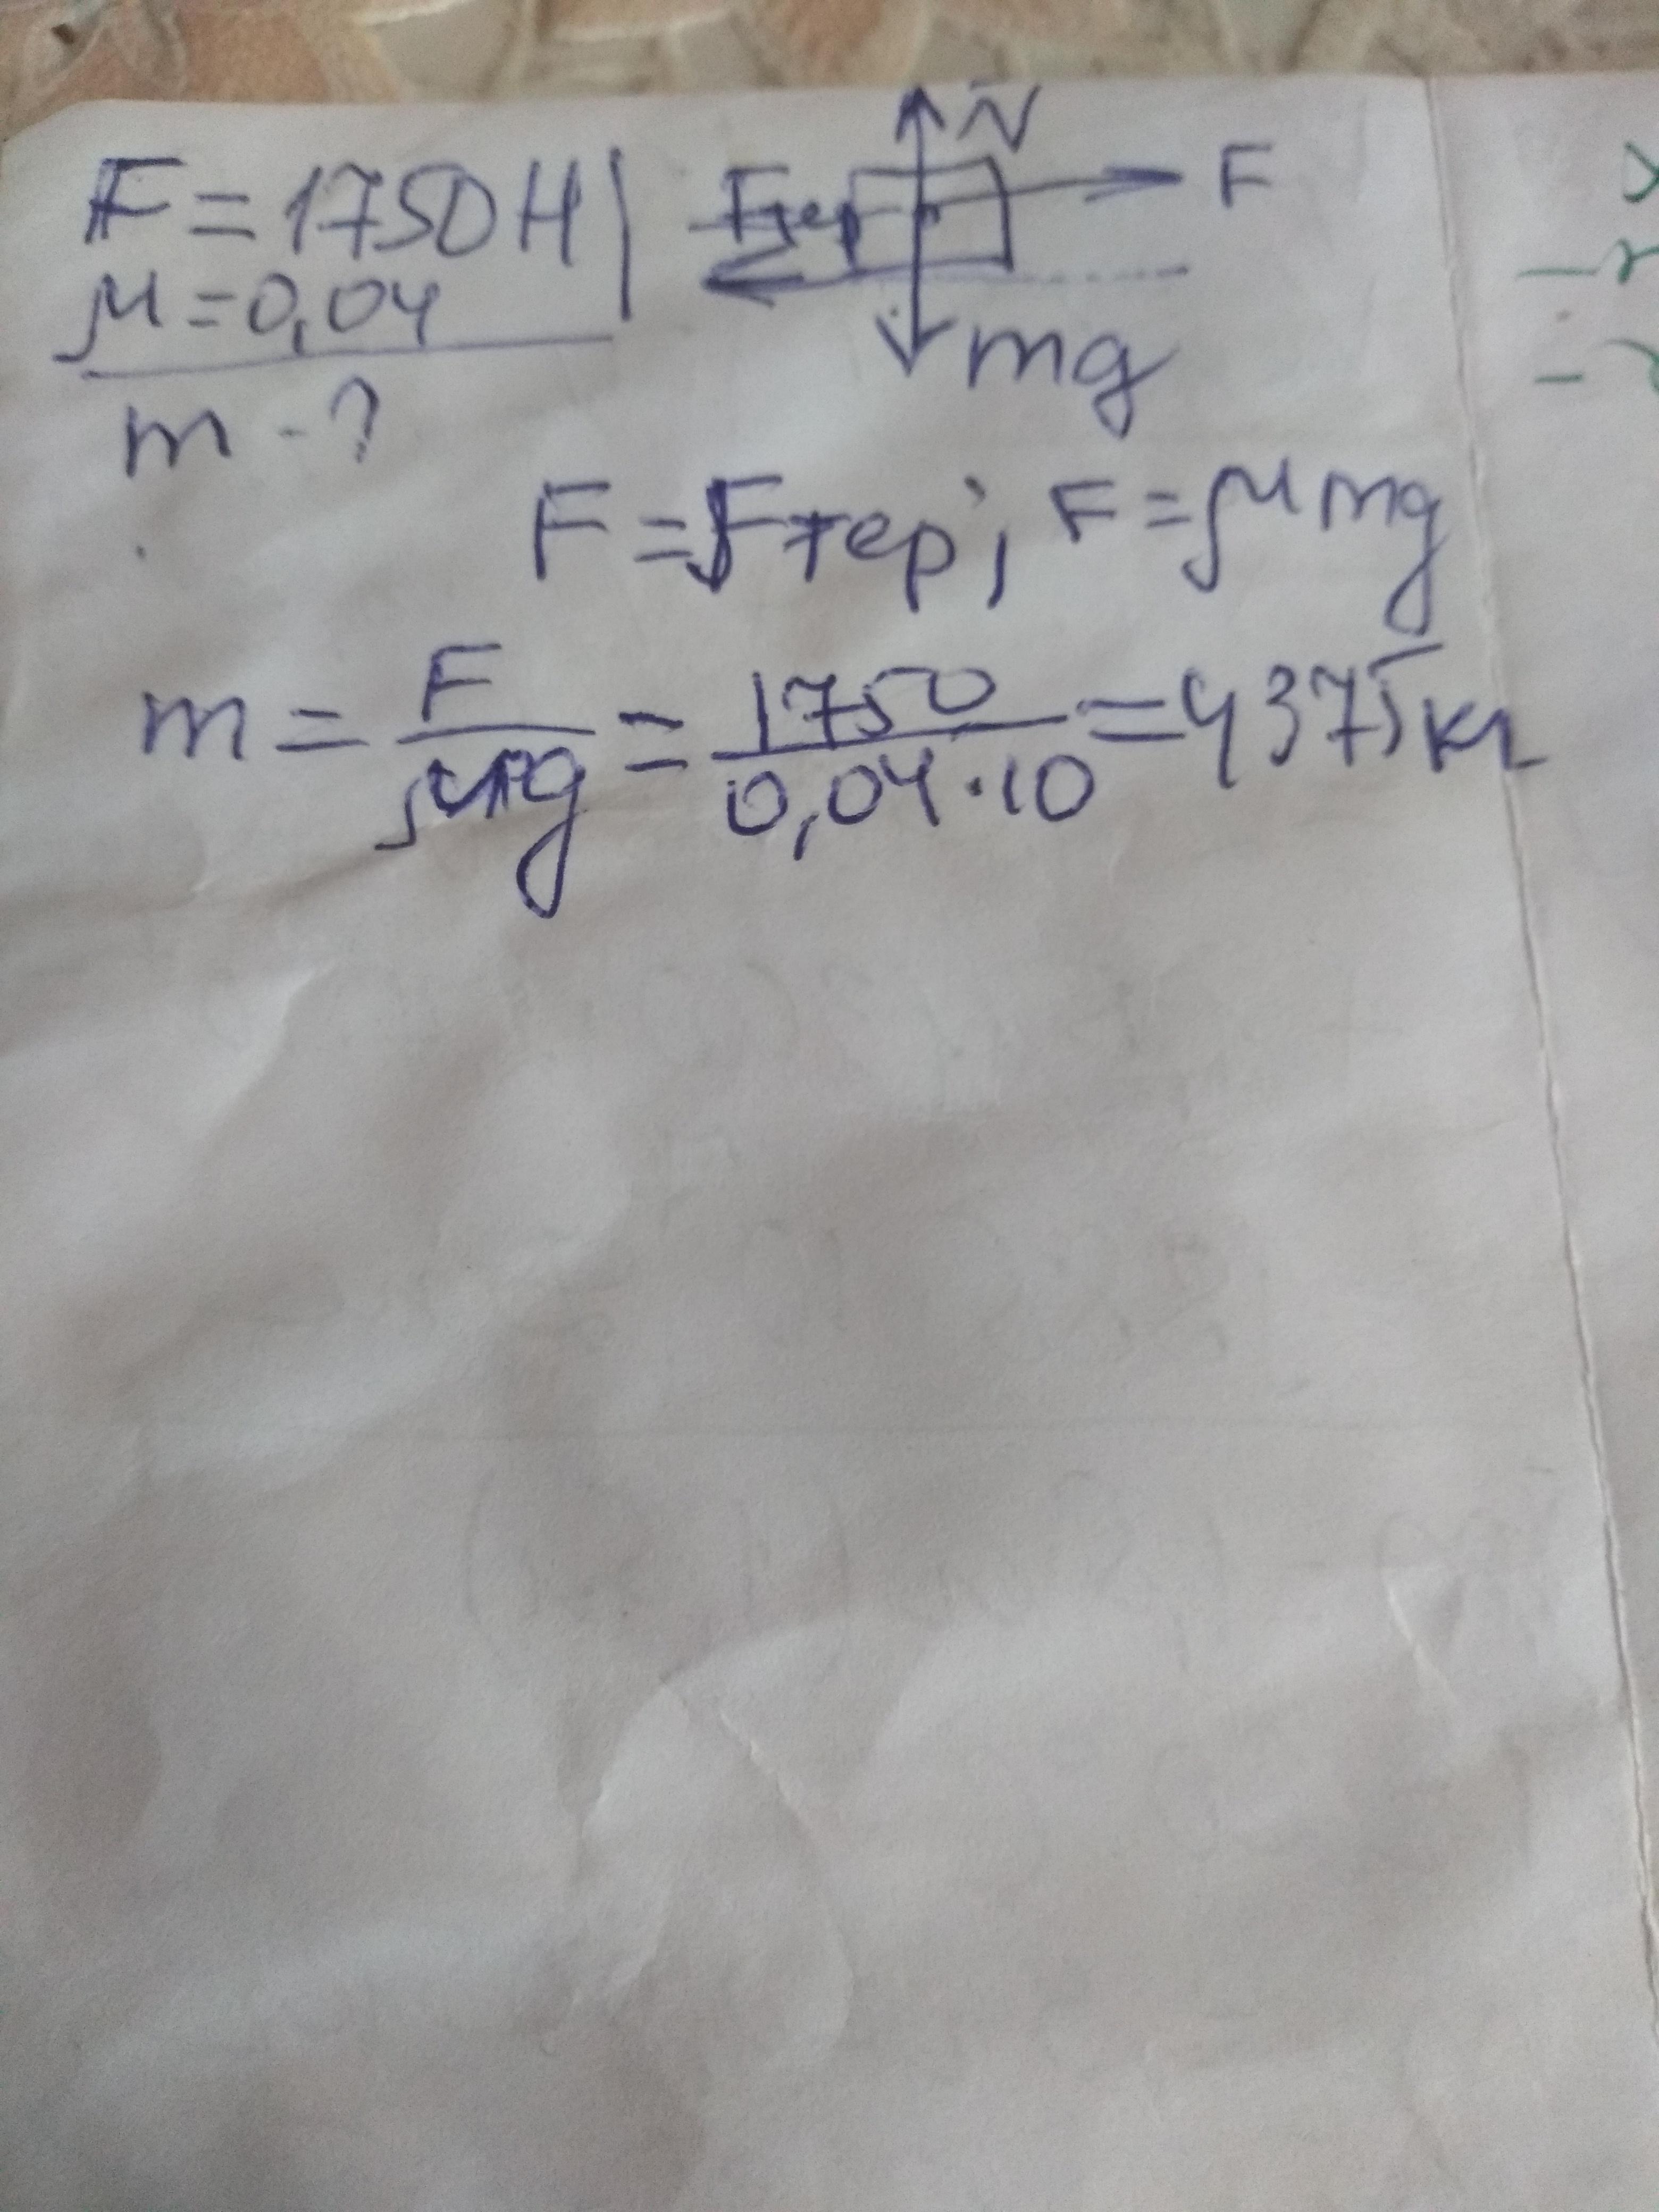 F = 1750 Н
μ = 0,04
m - ?
N
F
Fтер
mg
F = Fтер; F = μmg
m = F/μg = 1750/0,04·10 = 4375 кг